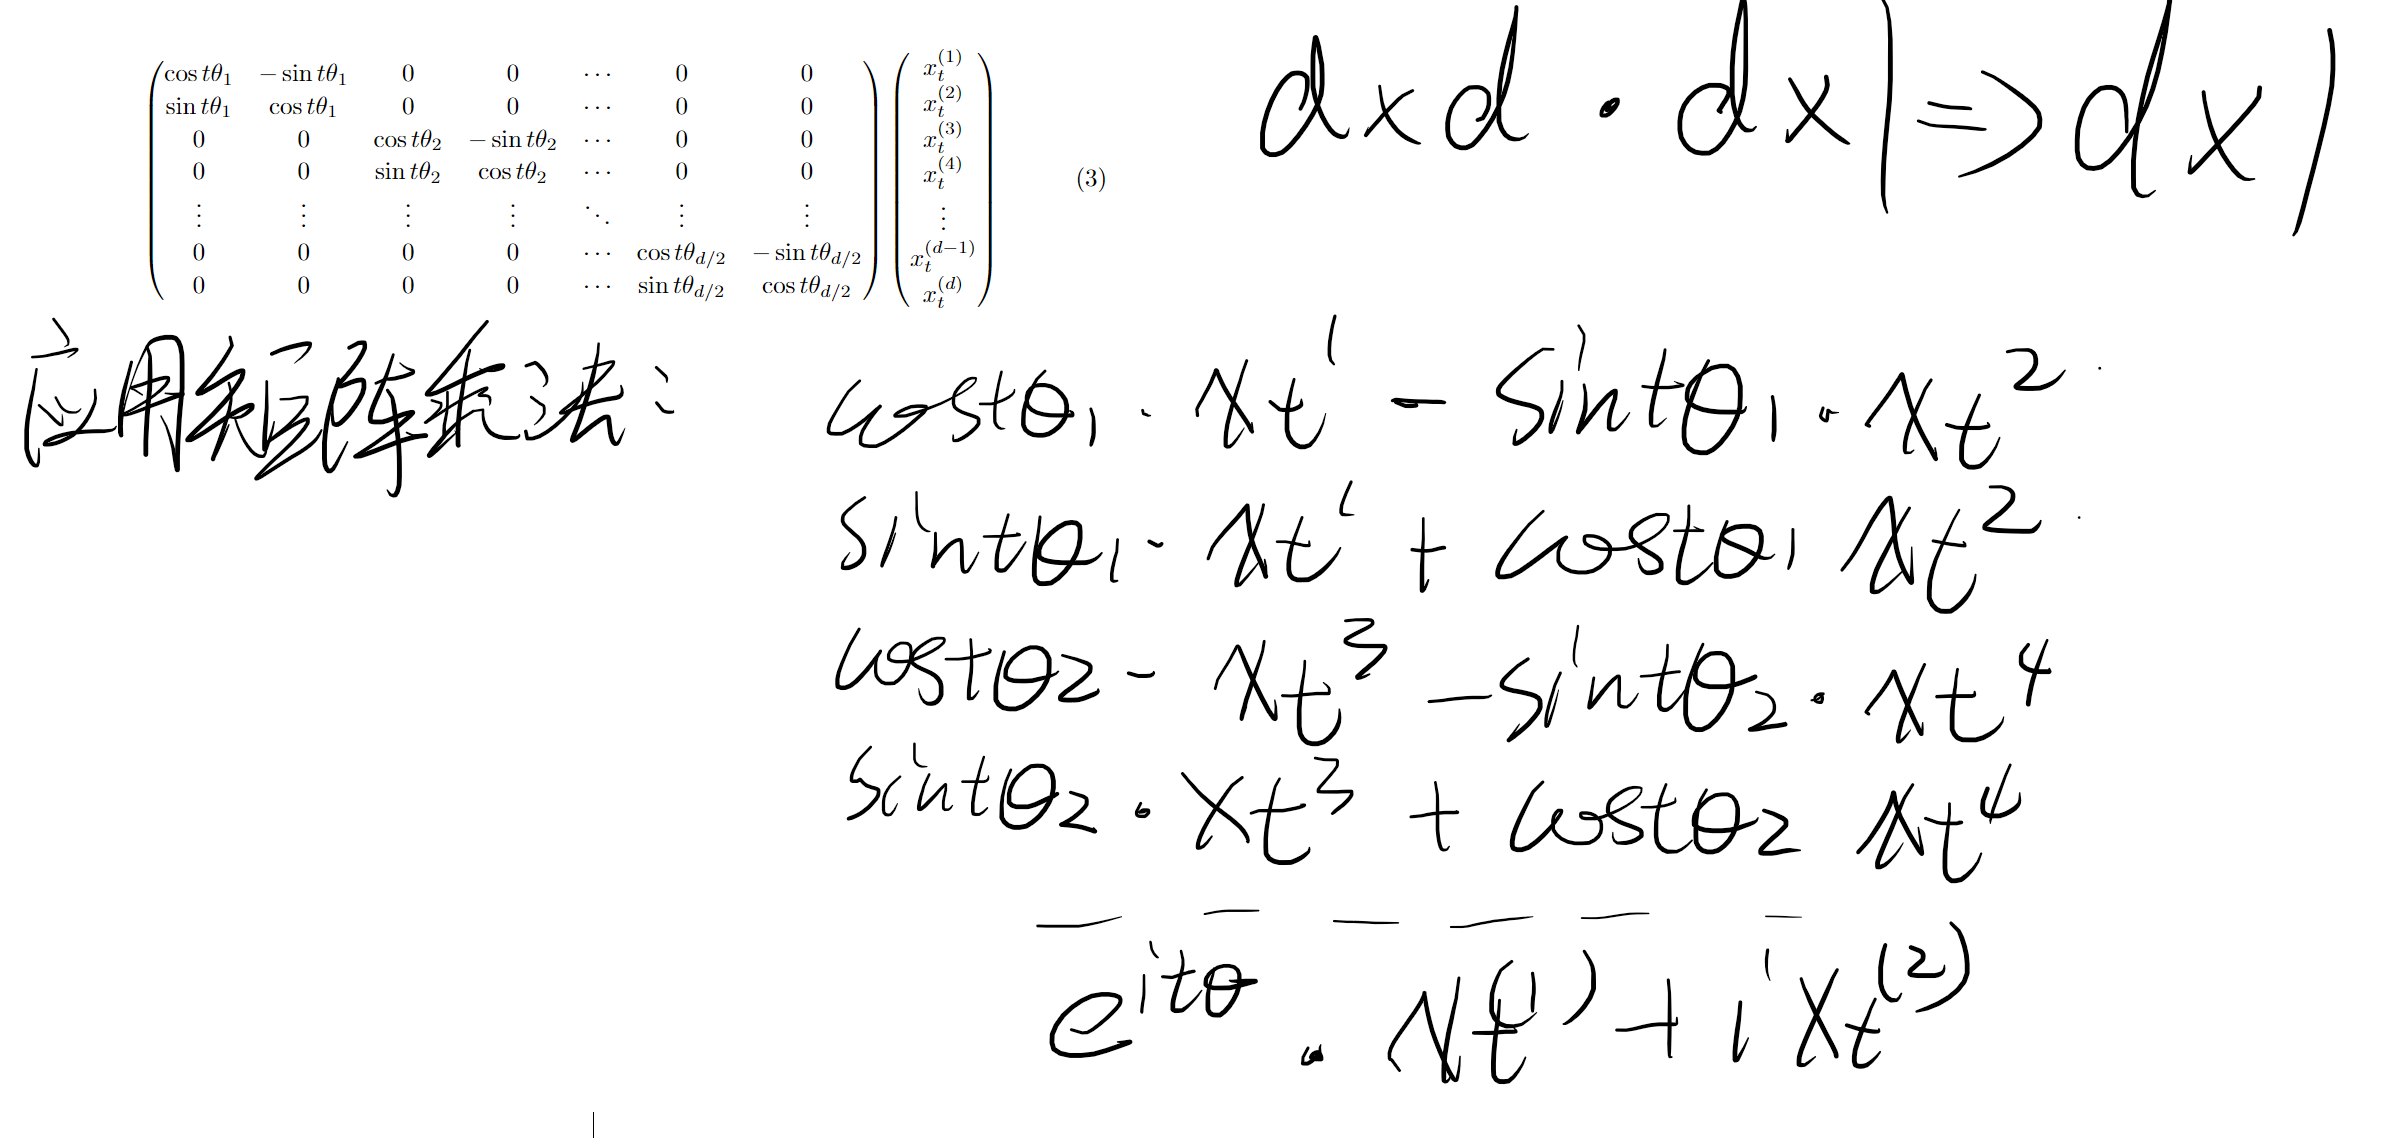 cos tθ₁ − sin tθ₁ 0 0 ⋯ 0 0 xₜ⁽¹⁾
sin tθ₁ cos tθ₁ 0 0 ⋯ 0 0 xₜ⁽²⁾
0 0 cos tθ₂ − sin tθ₂ ⋯ 0 0 xₜ⁽³⁾
0 0 sin tθ₂ cos tθ₂ ⋯ 0 0 xₜ⁽⁴⁾
⋮ ⋮ ⋮ ⋮ ⋱ ⋮ ⋮ ⋮
0 0 0 0 ⋯ cos tθ_{d/2} − sin tθ_{d/2} xₜ⁽ᵈ⁻¹⁾
0 0 0 0 ⋯ sin tθ_{d/2} cos tθ_{d/2} xₜ⁽ᵈ⁾
(3)
d×d · d×1 ⇒ d×1
应用矩阵乘法:
cos tθ₁ · xt¹ − sin tθ₁ · xt²
sin tθ₁ · xt¹ + cos tθ₁ xt²
cos tθ₂ · xt³ − sin tθ₂ · xt⁴
sin tθ₂ · xt³ + cos tθ₂ xt⁴
e^{itθ} · xt⁽¹⁾ + i xt⁽²⁾